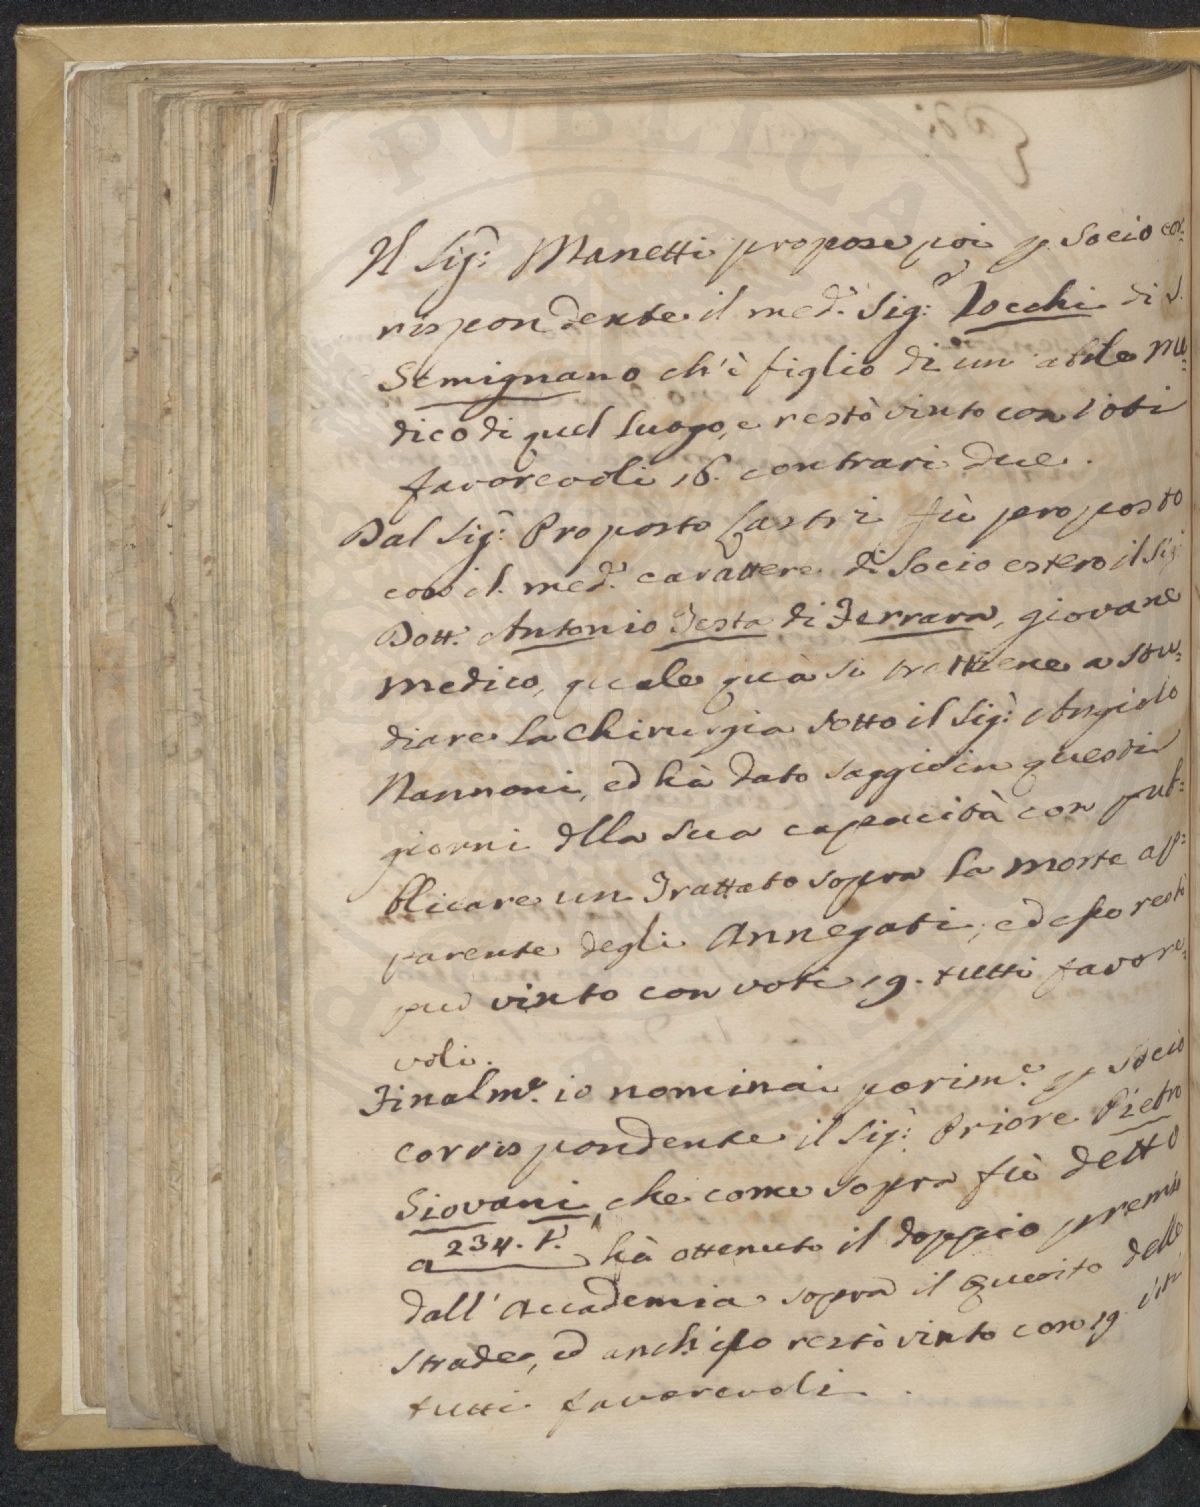 PVBLICA
Il Sig.r Manetti propose poi p Socio cor=
rispondente il med.o Sig.r Iocchi di S.
Gemignano ch'è figlio di un abile Me=
dico di quel luogo, e restò vinto con voti
favorevoli 16. contrari due.
Dal Sig.r Proposto Lastri fù proposto
con il med.o carattere di Socio estero il Sig.r
Dott. Antonio Testa di Ferrara, giovane
medico, quale quà si trattiene a stu=
diare la Chirurgia sotto il Sig.r Angiolo
Nannoni, ed hà dato saggio in questi
giorni della sua capacità con pub=
blicare un Trattato sopra la morte ap=
parente degli Annegati, ed esso restò
pur vinto con voti 19. tutti favore=
voli.
Finalm.e io nominai parim.e p Socio
corrispondente il Sig.r Priore Pietro
Giovani, che come sopra fù detto
a 234. t. hà ottenuto il doppio premio
dall'Accademia sopra il quesito delle
Strade, ed anch'esso restò vinto con 19.
tutti favorevoli.
PUBLIC